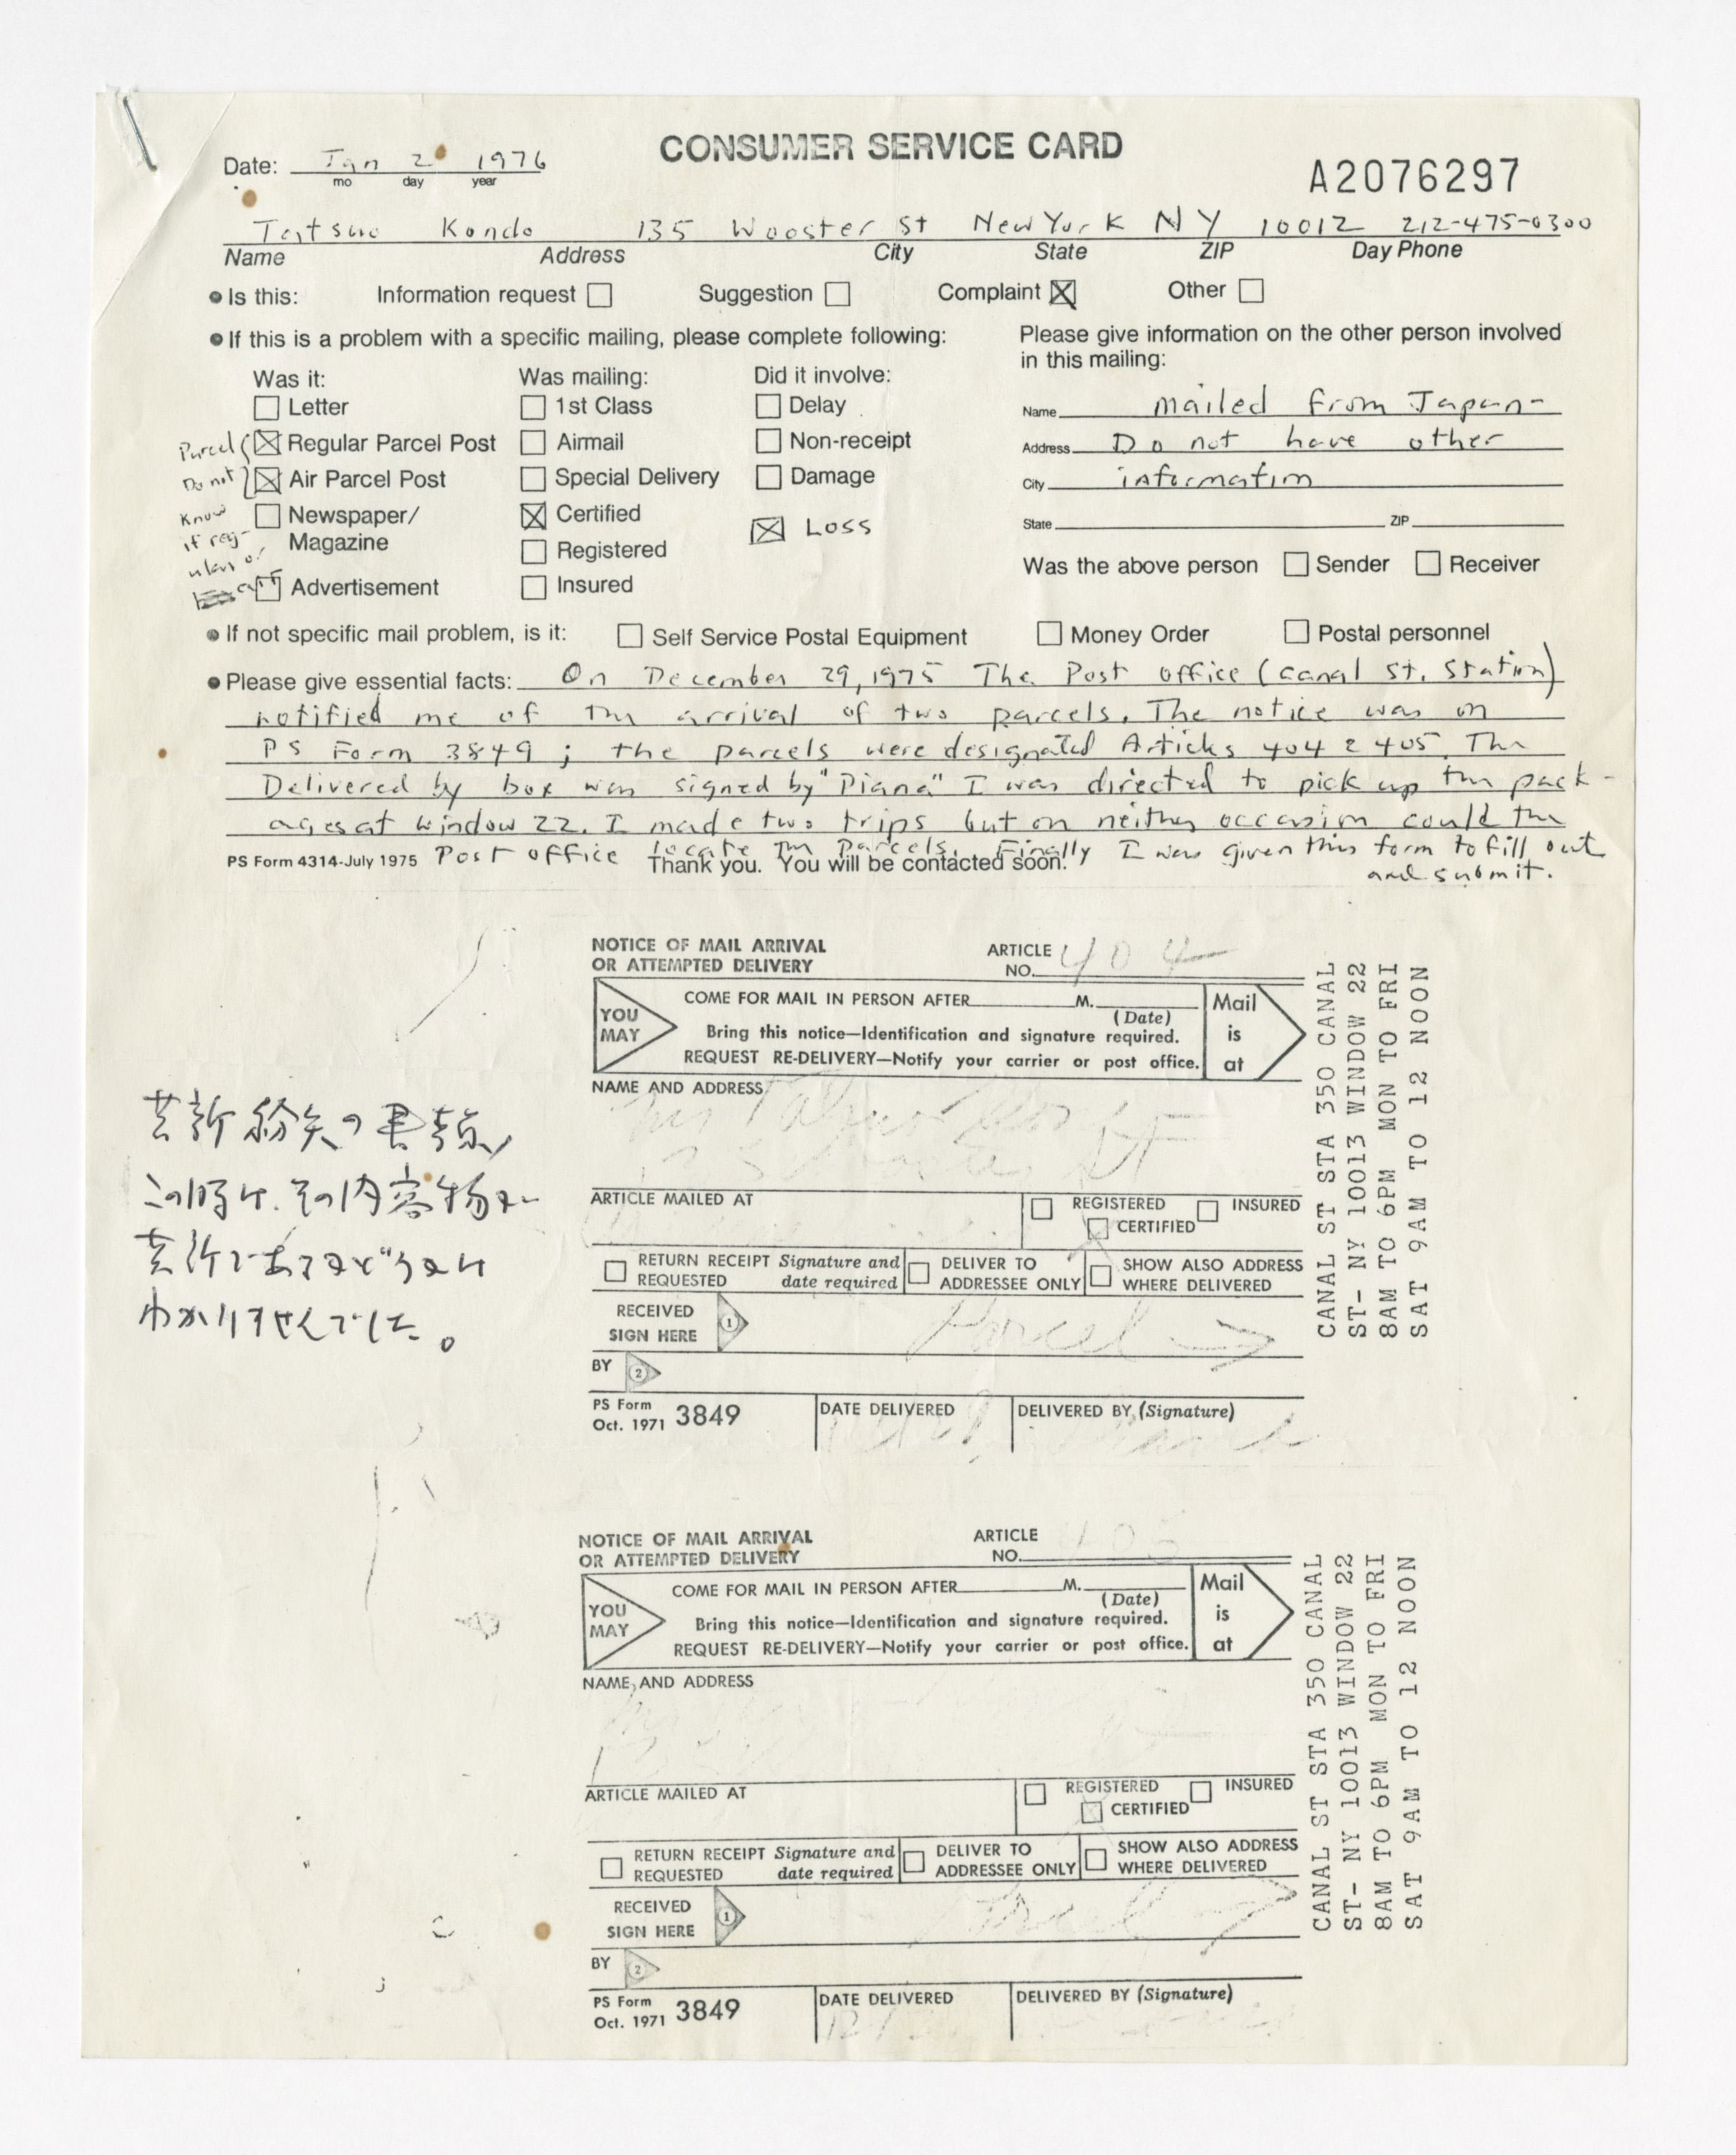 CONSUMER SERVICE CARD
Date: Jan 2 1976
mo day year
A2076297
Tatsuo Kondo 135 Wooster St New York NY 10012 212-475-0300
Name Address City State ZIP Day Phone
Is this: Information request Suggestion Complaint Other
If this is a problem with a specific mailing, please complete following:
Was it: Was mailing: Did it involve:
Letter 1st Class Delay
Regular Parcel Post Airmail Non-receipt
Air Parcel Post Special Delivery Damage
Newspaper/ Certified Loss
Magazine Registered
Advertisement Insured
Parcel
Do not
Know
if reg-
ular or
air
Please give information on the other person involved
in this mailing:
Name mailed from Japan-
Address Do not have other
City information
State ZIP
Was the above person Sender Receiver
If not specific mail problem, is it: Self Service Postal Equipment Money Order Postal personnel
Please give essential facts: On December 29, 1975 The Post office (canal St. Station)
notified me of the arrival of two parcels. The notice was on
PS Form 3849; the parcels were designated Articles 404 & 405. The
Delivered by box was signed by "Diana" I was directed to pick up the pack-
ages at window 22. I made two trips but on neither occasion could the
Post office locate the parcels. Finally I was given this form to fill out
and submit.
PS Form 4314-July 1975 Thank you. You will be contacted soon!
NOTICE OF MAIL ARRIVAL
OR ATTEMPTED DELIVERY
ARTICLE
NO. 404
YOU
MAY
COME FOR MAIL IN PERSON AFTER M.
(Date)
Bring this notice—Identification and signature required.
REQUEST RE-DELIVERY—Notify your carrier or post office.
Mail
is
at
CANAL ST STA 350 CANAL
ST- NY 10013 WINDOW 22
8AM TO 6PM MON TO FRI
SAT 9AM TO 12 NOON
NAME AND ADDRESS
ARTICLE MAILED AT
REGISTERED INSURED
CERTIFIED
RETURN RECEIPT Signature and
REQUESTED date required
DELIVER TO
ADDRESSEE ONLY
SHOW ALSO ADDRESS
WHERE DELIVERED
RECEIVED
SIGN HERE 1
Parcel
BY 2
PS Form
Oct. 1971 3849
DATE DELIVERED
DELIVERED BY (Signature)
芸術紛失の書類、
この時は、その内容物が
芸術であるかどうかは
わかりませんでした。
NOTICE OF MAIL ARRIVAL
OR ATTEMPTED DELIVERY
ARTICLE
NO. 405
YOU
MAY
COME FOR MAIL IN PERSON AFTER M.
(Date)
Bring this notice—Identification and signature required.
REQUEST RE-DELIVERY—Notify your carrier or post office.
Mail
is
at
CANAL ST STA 350 CANAL
ST- NY 10013 WINDOW 22
8AM TO 6PM MON TO FRI
SAT 9AM TO 12 NOON
NAME AND ADDRESS
ARTICLE MAILED AT
REGISTERED INSURED
CERTIFIED
RETURN RECEIPT Signature and
REQUESTED date required
DELIVER TO
ADDRESSEE ONLY
SHOW ALSO ADDRESS
WHERE DELIVERED
RECEIVED
SIGN HERE 1
Parcel
BY 2
PS Form
Oct. 1971 3849
DATE DELIVERED
DELIVERED BY (Signature)